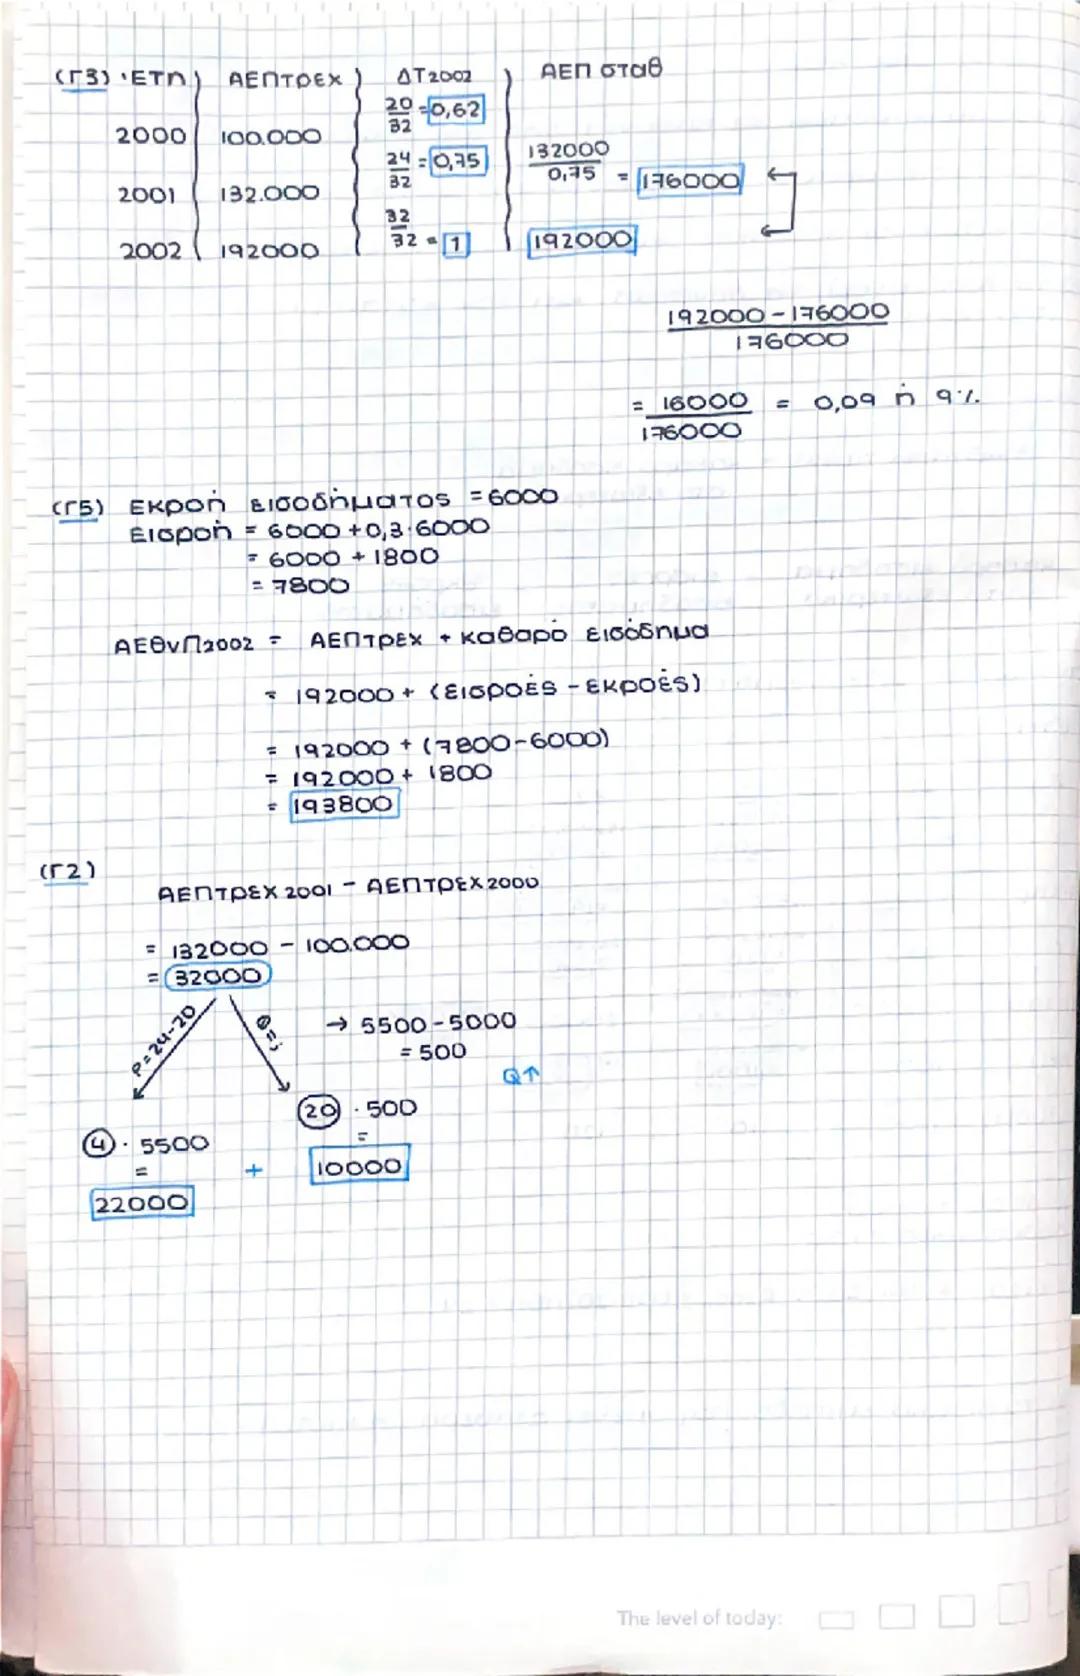 (Γ3) 'ΕΤΠ) ΑΕΠΤΡΕΧ ) ΔΤ2002 ) ΑΕΠ σταθ
2000 100.000 20/32 = 0,62
2001 132.000 24/32 = 0,75 132000/0,75 = 176000
2002 192000 32/32 = 1 192000
192000 - 176000
176000
= 16000/176000 = 0,09 ή 9%.
(Γ5) Εκροή εισοδήματος = 6000
Εισροή = 6000 + 0,3·6000
= 6000 + 1800
= 7800
ΑΕΘνΠ2002 = ΑΕΠτρεχ + καθαρό εισόδημα
= 192000 + (εισροές - εκροές)
= 192000 + (7800-6000)
= 192000 + 1800
= 193800
(Γ2)
ΑΕΠΤΡΕΧ 2001 - ΑΕΠΤΡΕΧ 2000
= 132000 - 100.000
= 32000
P=24-20
Q=;
→ 5500 - 5000
= 500
Q↑
20 · 500
=
10000
4 · 5500
=
22000
+
The level of today: